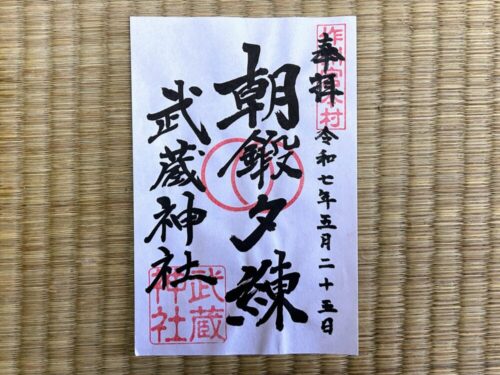 奉拝
作州宮本村
令和七年五月二十五日
朝鍛夕練
武蔵神社
武蔵
神社